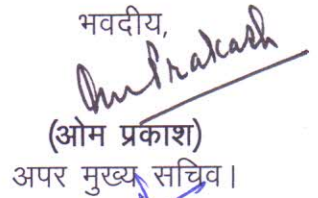 भवदीय,
Om Prakash
(ओम प्रकाश)
अपर मुख्य सचिव।